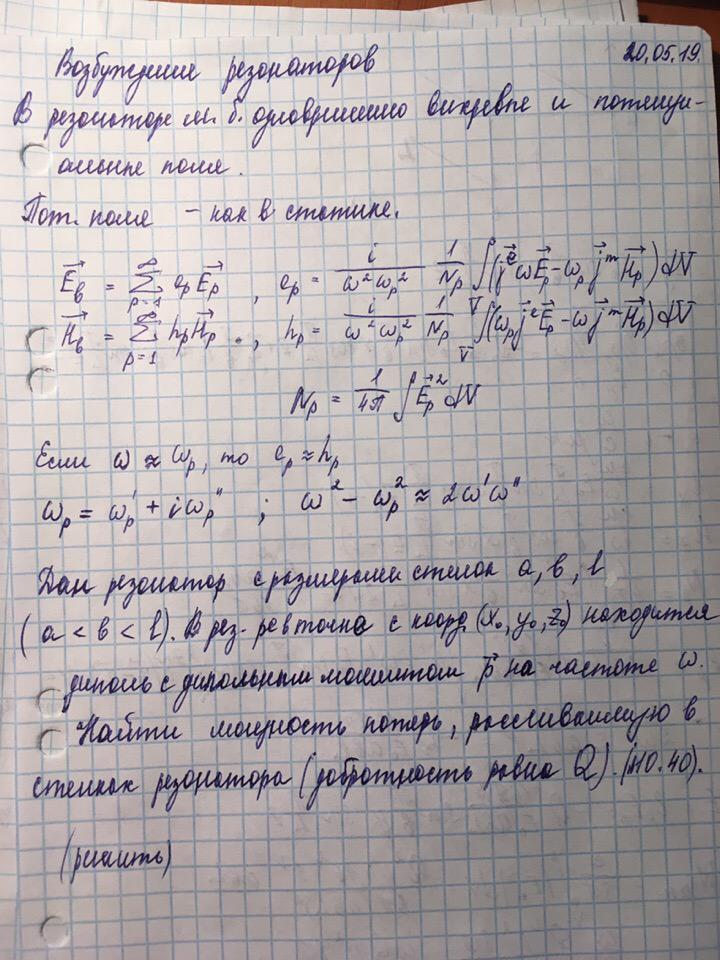 Возбуждение резонаторов 20.05.19.
В резонаторе м. б. одновременно вихревые и потенци-
альные поля.
Пот. поля – как в статике.
E⃗_в = ∑_{p=1}^{∞} e_p E⃗_p , e_p = i/(ω² ω_p²) 1/N_p ∫_V (j⃗^e ω E⃗_p − ω_p j⃗^m H⃗_p) dV
H⃗_в = ∑_{p=1}^{∞} h_p H⃗_p . , h_p = i/(ω² ω_p²) 1/N_p ∫_V (ω_p j⃗^e E⃗_p − ω j⃗^m H⃗_p) dV
N_p = 1/4π ∫ E⃗_p² dV
Если ω ≈ ω_p, то e_p ≈ h_p
ω_p = ω_p' + i ω_p'' ; ω² − ω_p² ≈ 2ω'ω''
Дан резонатор с размерами стенок a, в, l
(a < в < l). В рез- ре в точке с коорд. (x₀, y₀, z₀) находится
диполь с дипольным моментом p⃗ на частоте ω.
Найти мощность потерь, рассеиваемую в
стенках резонатора (добротность равна Q). (H0.40).
(решить)